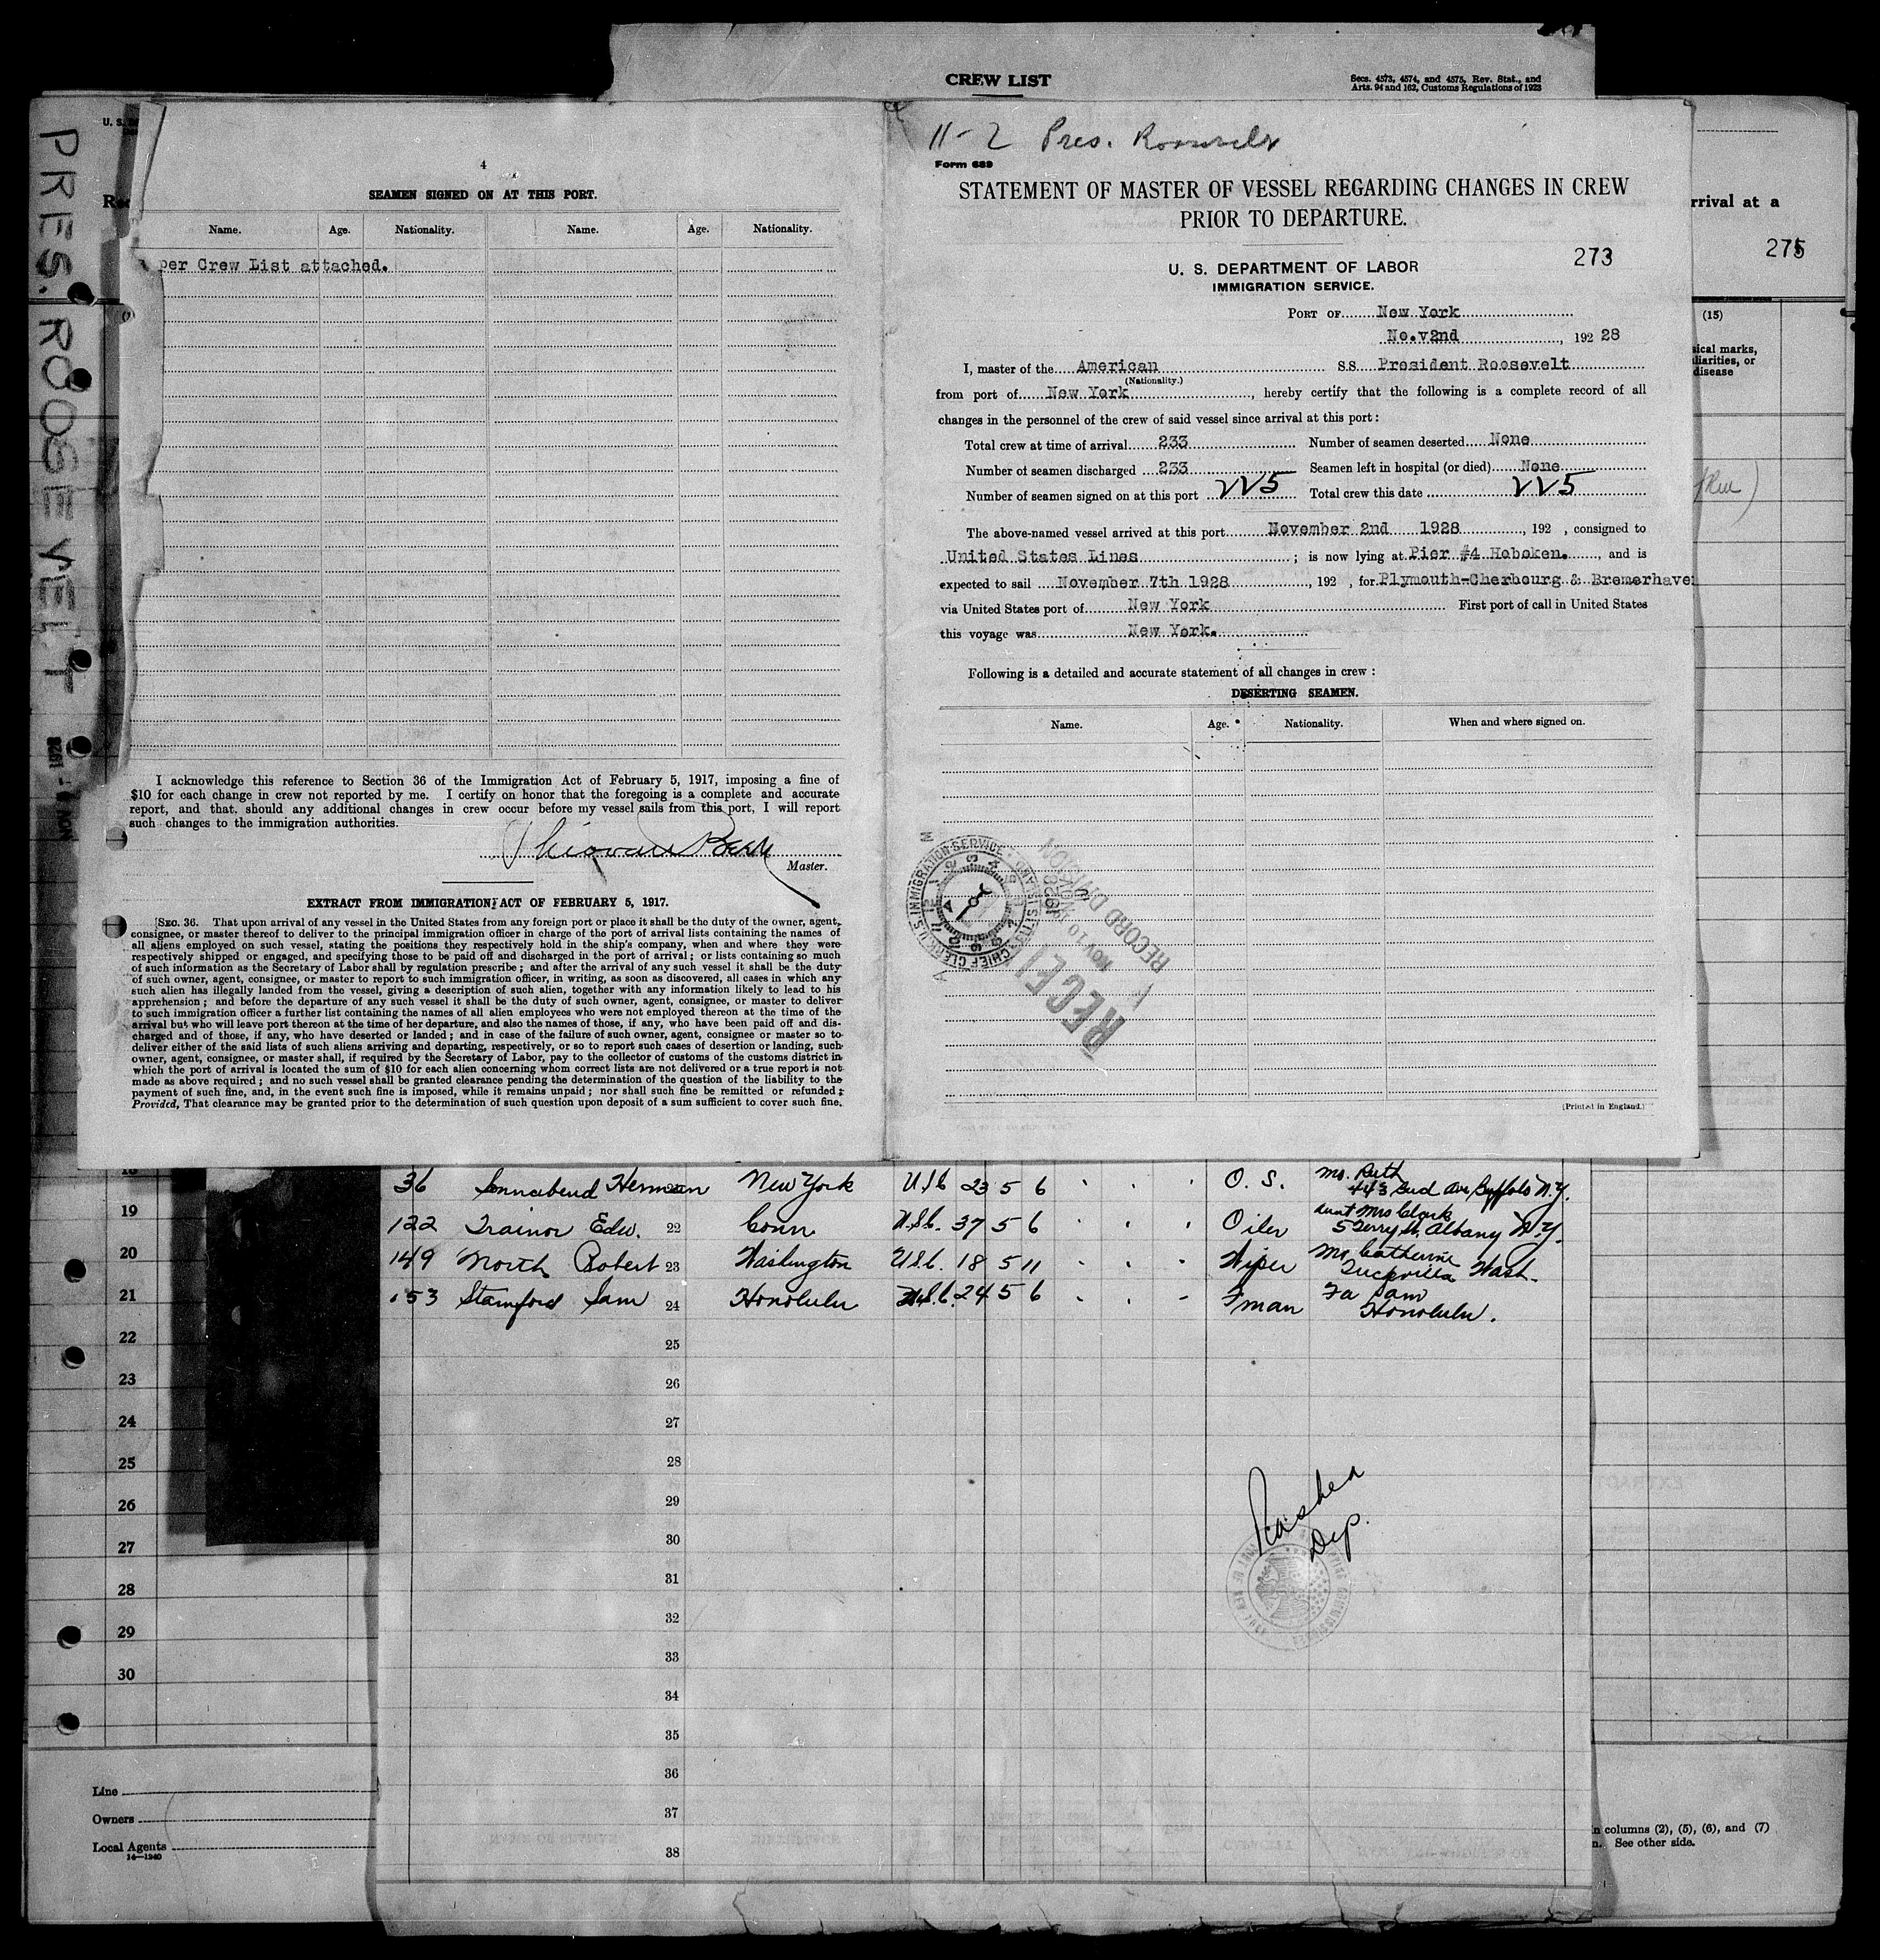 CREW LIST
Secs. 4573, 4574, and 4575, Rev. Stat., and
Arts. 94 and 162, Customs Regulations of 1923
PRES. ROOSEVELT
NOV 1928
U. S.
4
SEAMEN SIGNED ON AT THIS PORT.
Name. Age. Nationality. Name. Age. Nationality.
per Crew List attached.
I acknowledge this reference to Section 36 of the Immigration Act of February 5, 1917, imposing a fine of
$10 for each change in crew not reported by me. I certify on honor that the foregoing is a complete and accurate
report, and that, should any additional changes in crew occur before my vessel sails from this port, I will report
such changes to the immigration authorities.
Master.
EXTRACT FROM IMMIGRATION ACT OF FEBRUARY 5, 1917.
[SEC. 36. That upon arrival of any vessel in the United States from any foreign port or place it shall be the duty of the owner, agent,
consignee, or master thereof to deliver to the principal immigration officer in charge of the port of arrival lists containing the names of
all aliens employed on such vessel, stating the positions they respectively hold in the ship's company, when and where they were
respectively shipped or engaged, and specifying those to be paid off and discharged in the port of arrival; or lists containing so much
of such information as the Secretary of Labor shall by regulation prescribe; and after the arrival of any such vessel it shall be the duty
of such owner, agent, consignee, or master to report to such immigration officer, in writing, as soon as discovered, all cases in which any
such alien has illegally landed from the vessel, giving a description of such alien, together with any information likely to lead to his
apprehension; and before the departure of any such vessel it shall be the duty of such owner, agent, consignee, or master to deliver
to such immigration officer a further list containing the names of all alien employees who were not employed thereon at the time of the
arrival but who will leave port thereon at the time of her departure, and also the names of those, if any, who have been paid off and dis-
charged and of those, if any, who have deserted or landed; and in case of the failure of such owner, agent, consignee or master so to
deliver either of the said lists of such aliens arriving and departing, respectively, or so to report such cases of desertion or landing, such
owner, agent, consignee, or master shall, if required by the Secretary of Labor, pay to the collector of customs of the customs district in
which the port of arrival is located the sum of $10 for each alien concerning whom correct lists are not delivered or a true report is not
made as above required; and no such vessel shall be granted clearance pending the determination of the question of the liability to the
payment of such fine, and, in the event such fine is imposed, while it remains unpaid; nor shall such fine be remitted or refunded:
Provided, That clearance may be granted prior to the determination of such question upon deposit of a sum sufficient to cover such fine.
11-2 Pres. Roosevelt
Form 689
STATEMENT OF MASTER OF VESSEL REGARDING CHANGES IN CREW
PRIOR TO DEPARTURE.
273
U. S. DEPARTMENT OF LABOR
IMMIGRATION SERVICE.
PORT OF New York
No.v2nd, 192 28
I, master of the American SS President Roosevelt
(Nationality.)
from port of New York, hereby certify that the following is a complete record of all
changes in the personnel of the crew of said vessel since arrival at this port:
Total crew at time of arrival 233 Number of seamen deserted None
Number of seamen discharged 233 Seamen left in hospital (or died) None
Number of seamen signed on at this port 225 Total crew this date 225
The above-named vessel arrived at this port November 2nd 1928, 192 , consigned to
United States Lines; is now lying at Pier #4 Hoboken., and is
expected to sail November 7th 1928, 192 , for Plymouth-Cherbourg & Bremerhaven
via United States port of New York First port of call in United States
this voyage was New York.
Following is a detailed and accurate statement of all changes in crew:
DESERTING SEAMEN.
Name. Age. Nationality. When and where signed on.
IMMIGRATION SERVICE
CHIEF CLERK'S
RECEI
NOV 10 1928
RECORD DIVISION
(Printed in England.)
rrival at a
275
(15)
sical marks,
liarities, or
disease
36 Sonnabend Herman New York U.S.C. 23 5 6 O. S. Mo. Ruth
443 Gud Ave Buffalo N.Y.
122 Trainor Edw. 22 Conn U.S.C. 37 5 6 Oiler Aunt Mrs Clark
5 Terry St. Albany N.Y.
149 North Robert 23 Washington U.S.C. 18 5 11 Wiper Mo. Catherine
Wash.
153 Stamford Sam 24 Honolulu U.S.C. 24 5 6 Fman Fa Sam
Honolulu.
19
20
21
22
23
24
25
26
27
28
29
30
25
26
27
28
29
30
31
32
33
34
35
36
37
38
Dep.
Line
Owners
Local Agents
14—1240
n columns (2), (5), (6), and (7)
n. See other side.